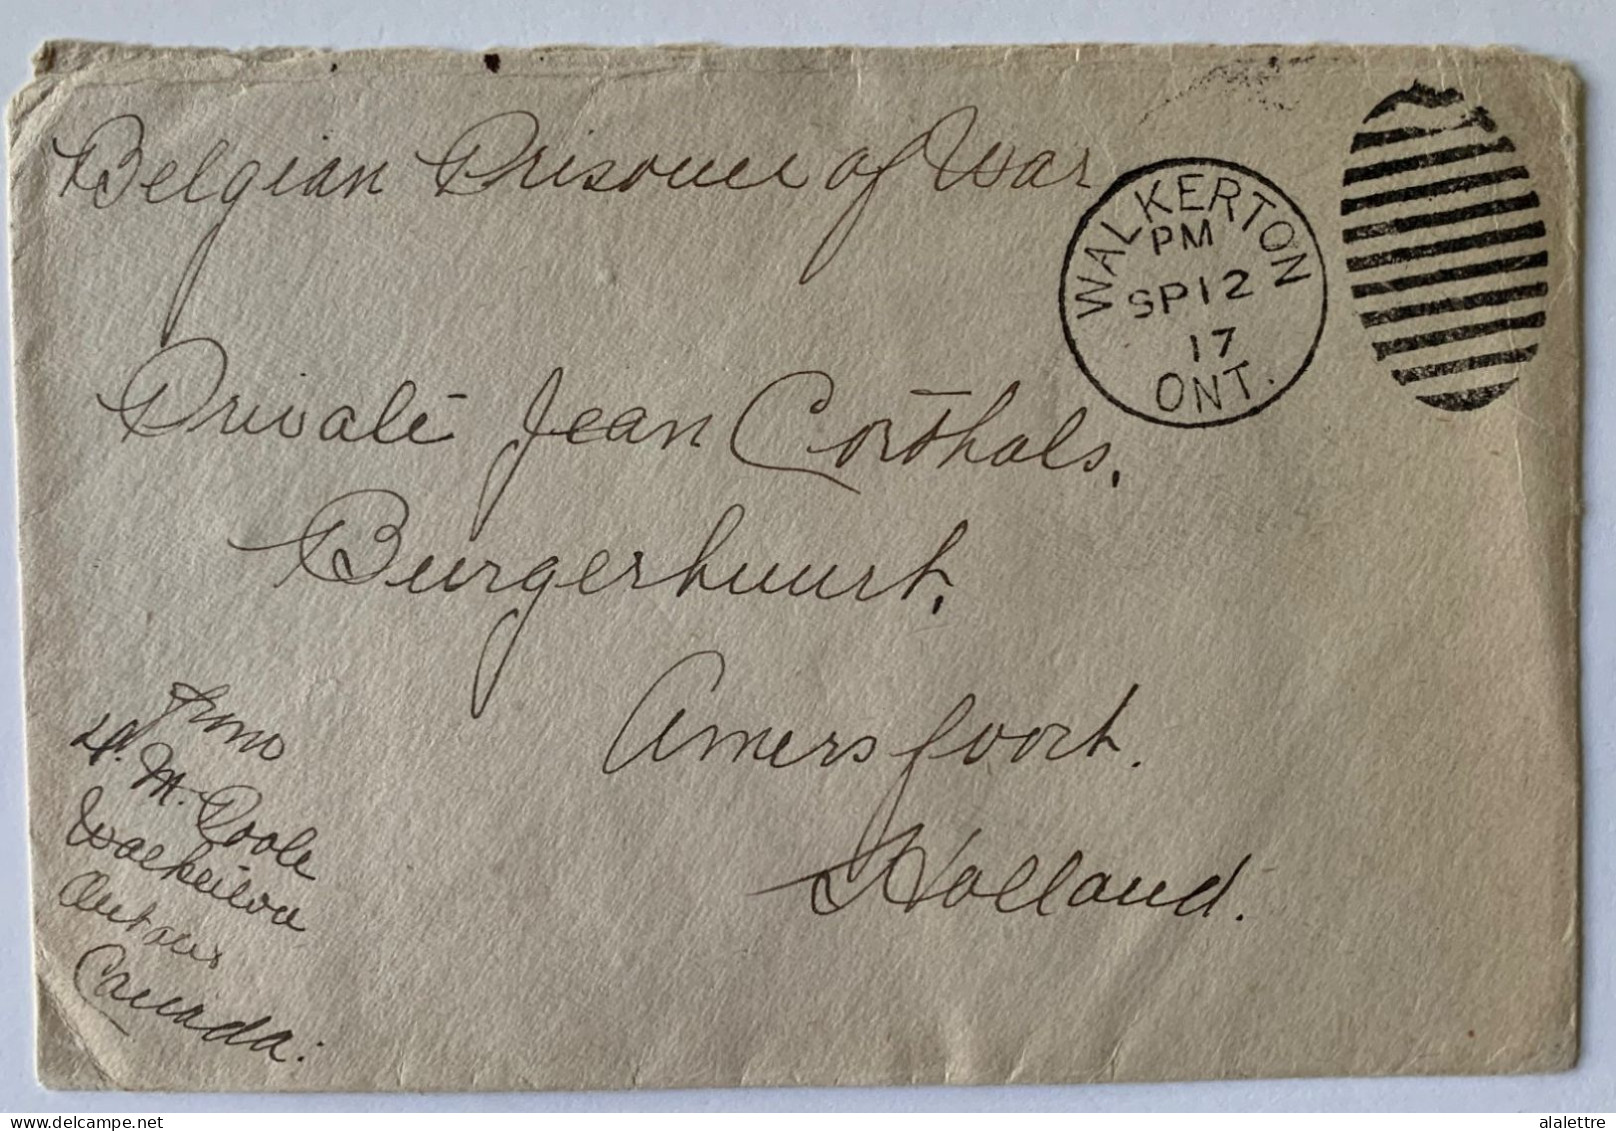 Belgian Prisoner of War
WALKERTON
PM
SP 12
17
ONT.
Private Jean Corthals,
Burgerhuurt,
Amersfoort.
Holland.
From
M. Poole
Walkerton
Ontario
Canada.
delcampe.net
alalettre